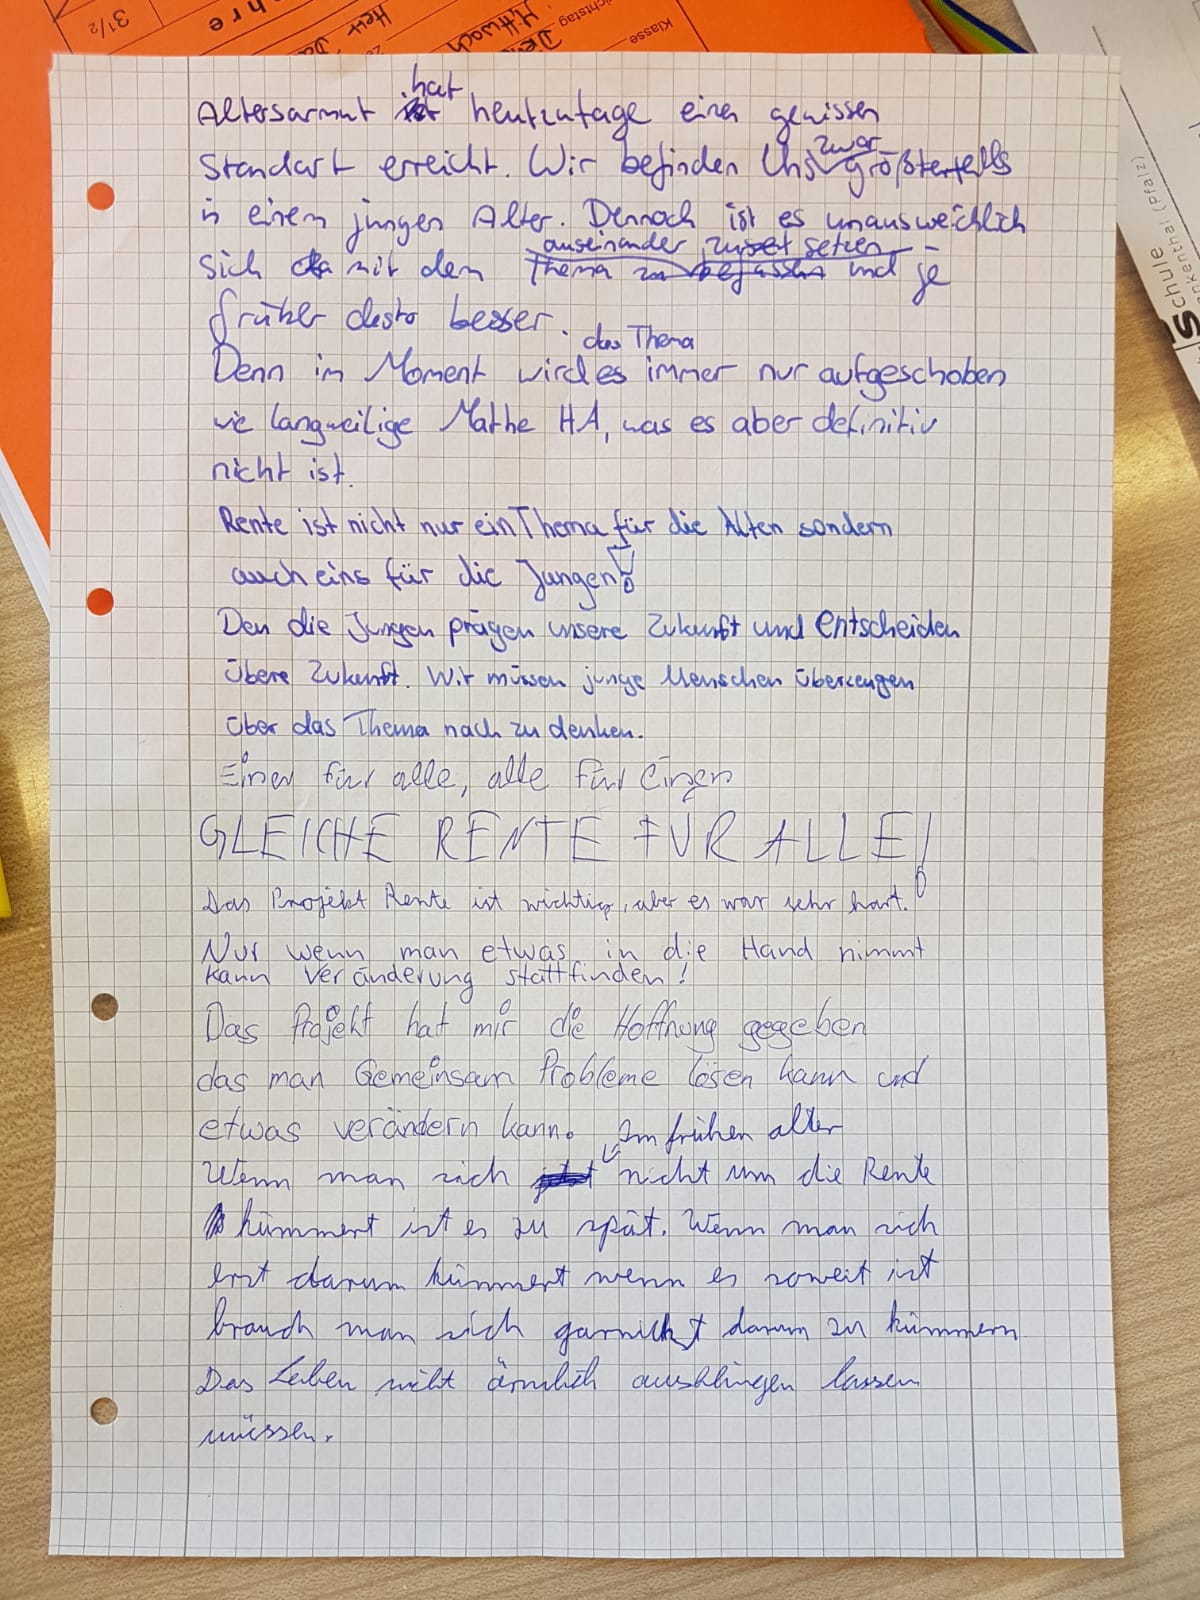 3 1/2
hre
Herr Da
Mittwoch
ichtstag
Klasse
Schule
nkenthal (Pfalz)
Altersarmut hat heutzutage einen gewissen
Standart erreicht. Wir befinden Uns zwar größtenteils
in einem jungen Alter. Dennoch ist es unausweichlich
sich mit dem Thema auseinander zu setzen und je
früher desto besser.
Denn im Moment wird das Thema immer nur aufgeschoben
wie langweilige Mathe HA, was es aber definitiv
nicht ist.
Rente ist nicht nur ein Thema für die Alten sondern
auch eins für die Jungen!
Den die Jungen prägen unsere Zukunft und entscheiden
übere Zukunft. Wir müssen junge Menschen überzeugen
über das Thema nach zu denken.
Einer für alle, alle für einen
GLEICHE RENTE FÜR ALLE!
Das Projekt Rente ist wichtig, aber es war sehr hart.
Nur wenn man etwas in die Hand nimmt
kann Veränderung stattfinden!
Das Projekt hat mir die Hoffnung gegeben
das man Gemeinsam Probleme lösen kann und
etwas verändern kann.
Wenn man sich Im frühen alter nicht um die Rente
kümmert ist es zu spät. Wenn man sich
erst darum kümmert wenn es soweit ist
brauch man sich garnicht darum zu kümmern
Das Leben nicht ärmlich ausklingen lassen
müssen.